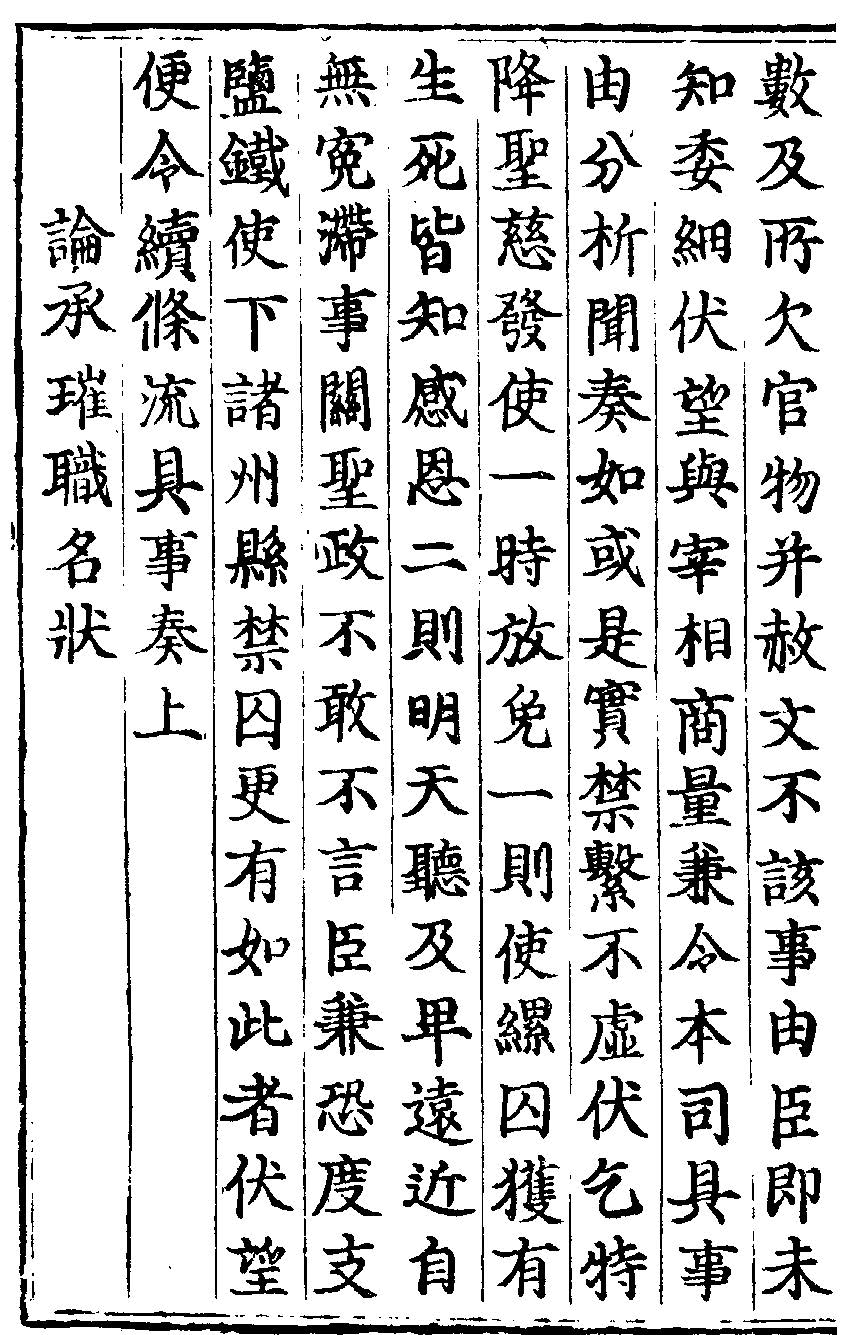 數及所欠官物并赦文不該事由臣即未
知委細伏望與宰相商量兼令本司具事
由分析聞奏如或是實禁繫不虛伏乞特
降聖慈發使一時放免一則使縲囚獲有
生死皆知感恩二則明天聽及卑遠近自
無寃滯事關聖政不敢不言臣兼恐度支
鹽鐵使下諸州縣禁囚更有如此者伏望
便令續條流具事奏上
論承璀職名狀